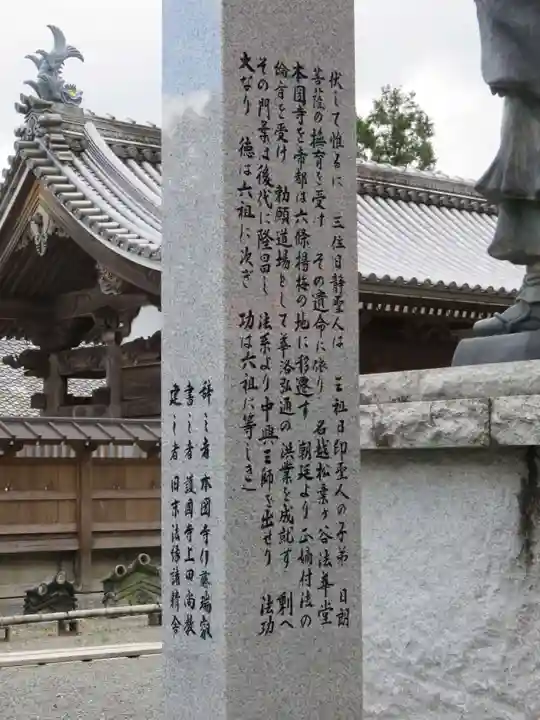 伏して惟るに 三位日静聖人は 三祖日印聖人の子弟 日朗
菩薩の撫育を受す その遺命に依り 名越松葉ヶ谷法華堂
本国寺を帝都は六條楊梅の地に移遷す 朝廷より正嫡付法の
綸旨を受け 勅願道場として華洛弘通の 洪業を成就す 剰へ
その門葉は後代に隆昌し 法系より中興三師を出せり 法功
大なり 徳は六祖に次ぎ 功は六祖に等しき也
辞之者 本圀寺 藤瑞
書之者 護国寺上田尚教
建之者 旧末法縁諸精舎